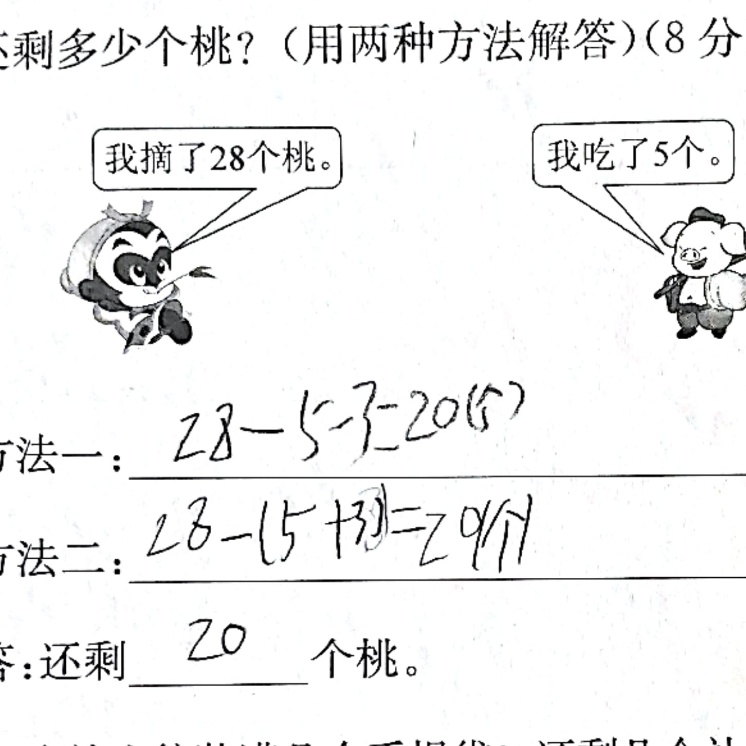 还剩多少个桃?(用两种方法解答)(8分
我摘了28个桃。
我吃了5个。
方法一: 28-5-3=20(个)
方法二: 28-(5+3)=20(个)
答:还剩 20 个桃。